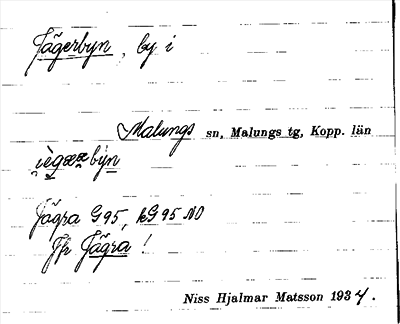 Jägerbyn, by i
Malungs sn, Malungs tg, Kopp. län
i̯ègææbẏn
Jägra G95, kG95 NO
Jfr Jägra !
Niss Hjalmar Matsson 1934.